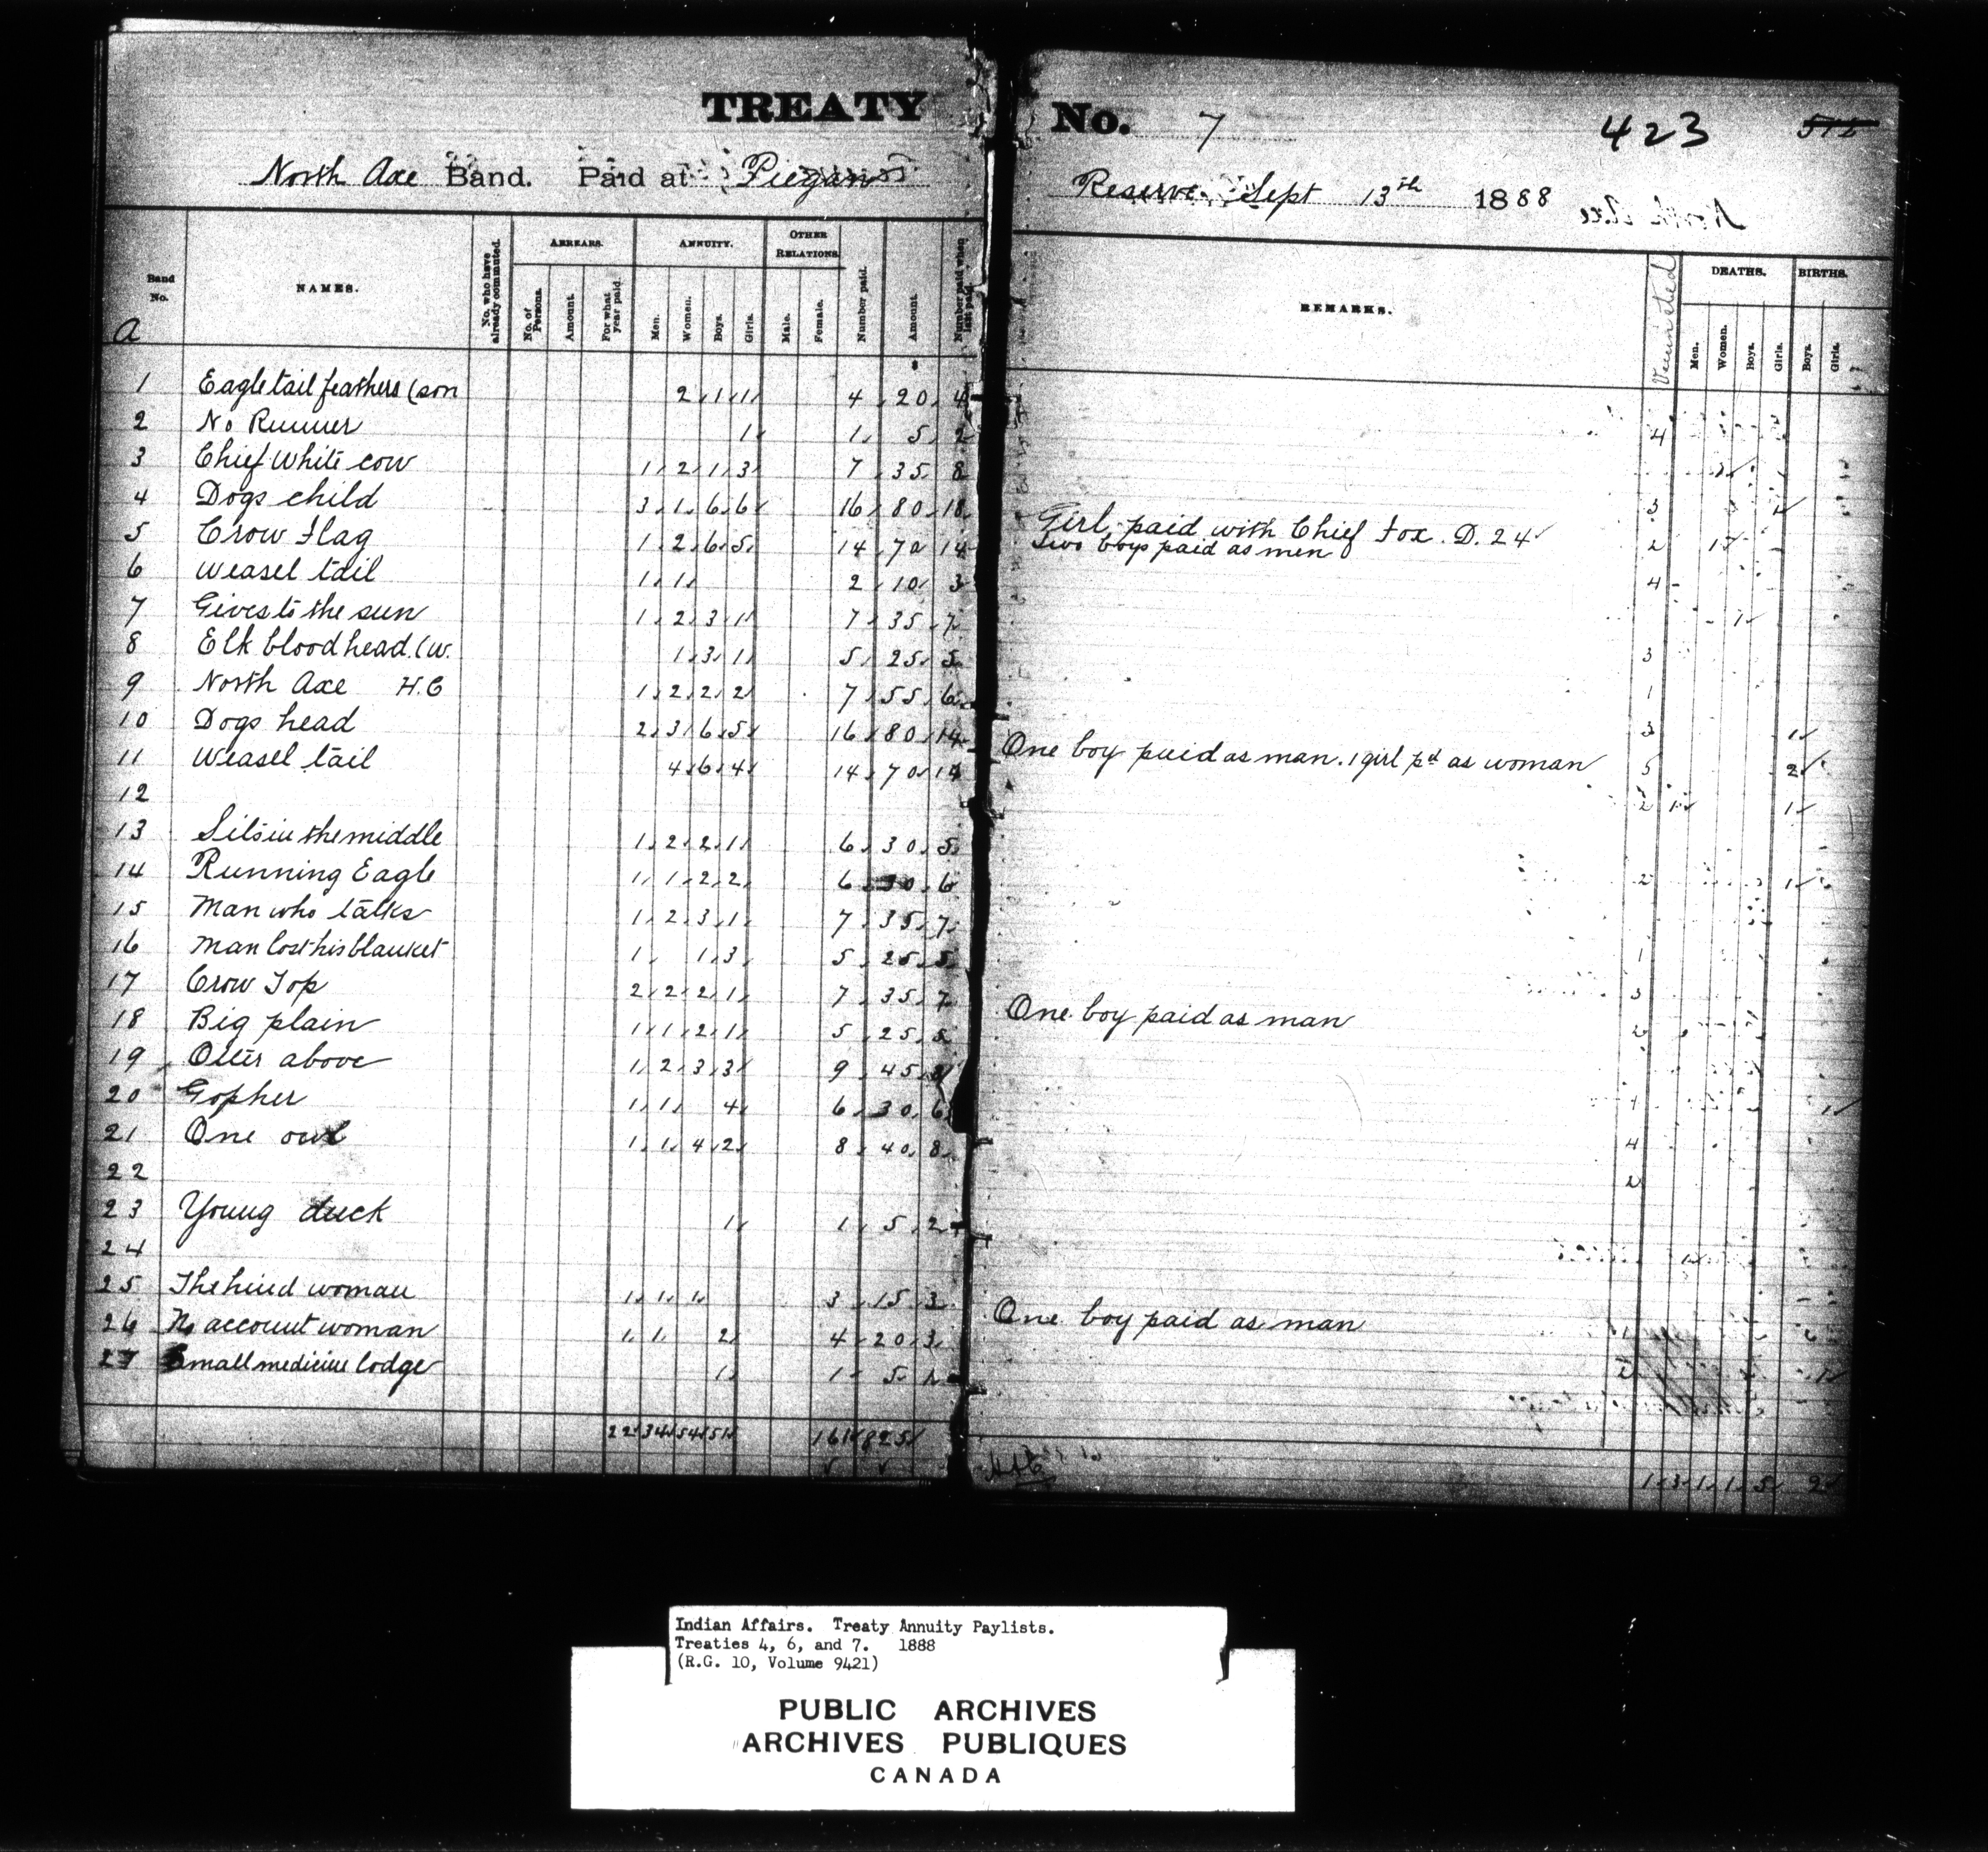 TREATY No. 7 423
North Axe Band. Paid at Piegan Reserve Sept 13th 1888
Band No. NAMES. No. who have already commuted. ARREARS. No. of Persons. Amount. For what year paid. ANNUITY. Men. Women. Boys. Girls. OTHER RELATIONS. Male. Female. Number paid. Amount. Number paid when last paid. REMARKS. DEATHS. Men. Women. Boys. Girls. BIRTHS. Boys. Girls.
A
1 Eagle tail feathers (son 2 1 1 4 20 4
2 No Runner 1 1 5 2 4
3 Chief White cow 1 2 1 3 7 35 8
4 Dogs child 3 1 6 6 16 80 18 Girl paid with Chief Fox. D. 24 3
Two boys paid as men
5 Crow Flag 1 2 6 5 14 70 14 2
6 Weasel tail 1 1 2 10 3 4
7 Gives to the sun 1 2 3 1 7 35 7
8 Elk blood head (w. 1 3 1 5 25 5 3
9 North Axe H.C 1 2 2 2 7 55 6 1
10 Dogs head 2 3 6 5 16 80 14 One boy paid as man. 1 girl pd as woman 3 1
11 Weasel tail 4 6 4 14 70 14 5 2
12 2 1 1
13 Sits in the middle 1 2 2 1 6 30 5
14 Running Eagle 1 1 2 2 6 30 6 2 1
15 Man who talks 1 2 3 1 7 35 7
16 Man lost his blanket 1 1 3 5 25 5 1
17 Crow Top 2 2 2 1 7 35 7 One boy paid as man 3
18 Big plain 1 1 2 1 5 25 5 2
19 Otter above 1 2 3 3 9 45
20 Gopher 1 1 4 6 30 6 1
21 One owl 1 1 4 2 8 40 8 4
22 2
23 Young duck 1 1 5 2
24
25 The hind woman 1 1 1 3 15 3 One boy paid as man
26 No account woman 1 1 2 4 20 3
27 Small medicine lodge 1 1 5 1
22 34 54 51 161 825
1 3 1 1 5 2
Indian Affairs. Treaty Annuity Paylists.
Treaties 4, 6, and 7. 1888
(R.G. 10, Volume 9421)
PUBLIC ARCHIVES
ARCHIVES PUBLIQUES
CANADA